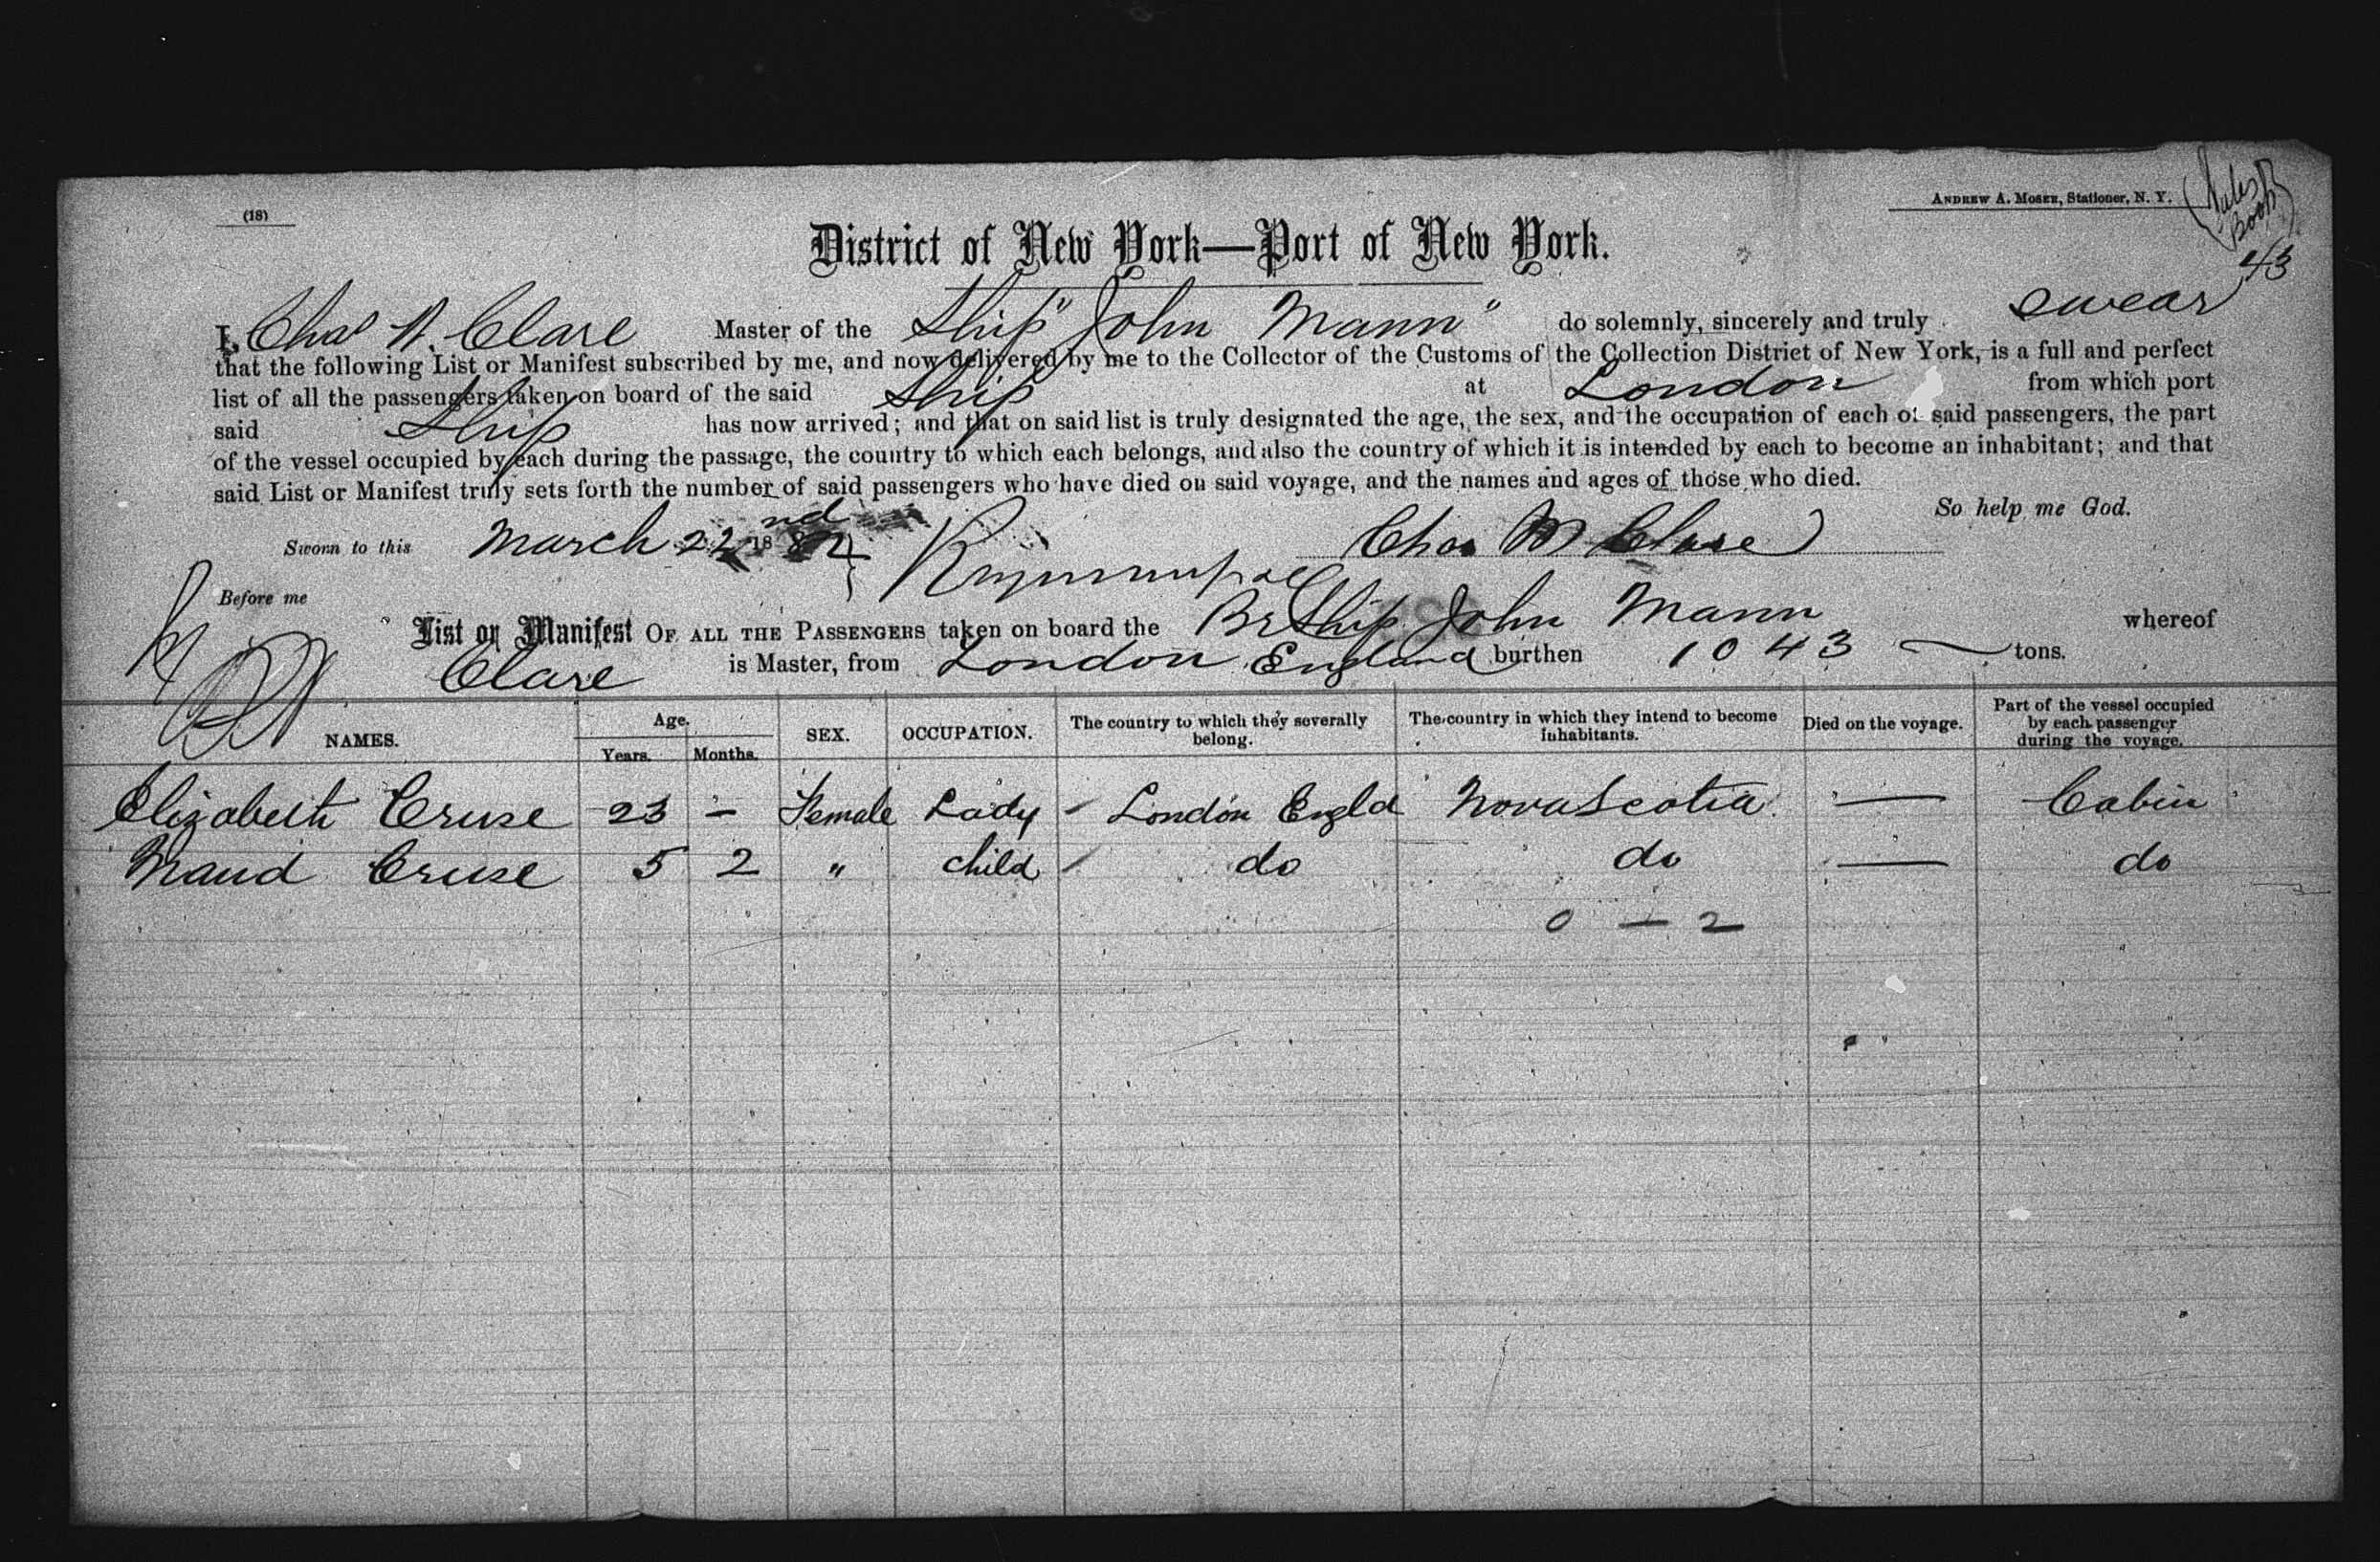 (18)
ANDREW A. MOSER, Stationer, N. Y.
Book
43
District of New York—Port of New York.
I, Chas Clare Master of the Ship "John Mann" do solemnly, sincerely and truly swear
that the following List or Manifest subscribed by me, and now delivered by me to the Collector of the Customs of the Collection District of New York, is a full and perfect
list of all the passengers taken on board of the said Ship at London from which port
said Ship has now arrived; and that on said list is truly designated the age, the sex, and the occupation of each of said passengers, the part
of the vessel occupied by each during the passage, the country to which each belongs, and also the country of which it is intended by each to become an inhabitant; and that
said List or Manifest truly sets forth the number of said passengers who have died on said voyage, and the names and ages of those who died.
So help me God.
Sworn to this March 22nd 1882 Chas Clare
Before me
List or Manifest OF ALL THE PASSENGERS taken on board the Br Ship John Mann whereof
Clare is Master, from London England burthen 1043 tons.
NAMES. Age. Years. Months. SEX. OCCUPATION. The country to which they severally belong. The country in which they intend to become inhabitants. Died on the voyage. Part of the vessel occupied by each passenger during the voyage.
Elizabeth Cruse 23 — Female Lady London Engld Nova Scotia — Cabin
Maud Cruse 5 2 " child do do — do
0 — 2